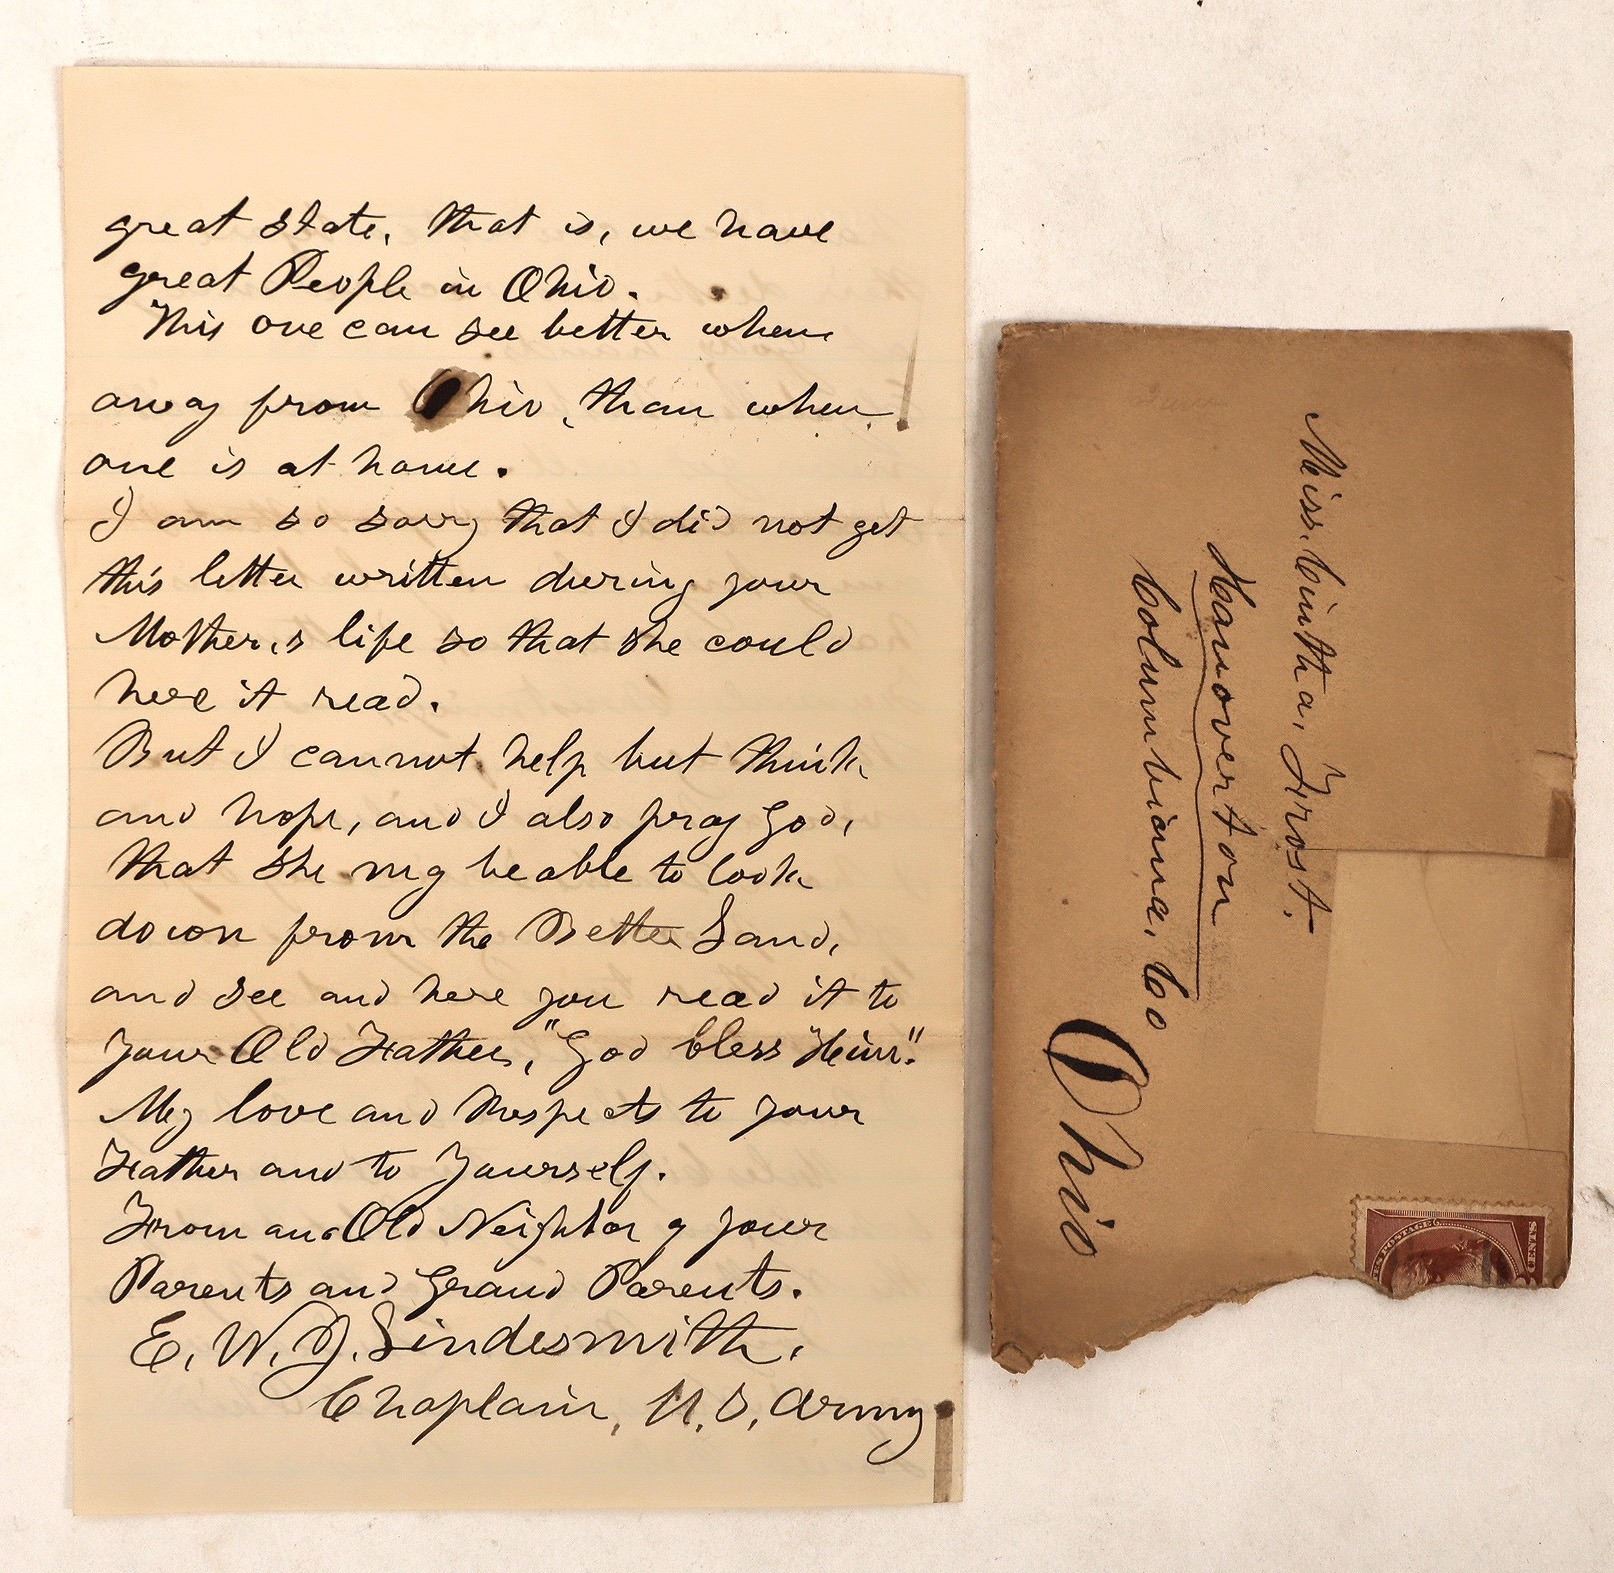 great State, that is, we have
great People in Ohio.
This one can see better when
away from Ohio, than when
one is at home.
I am so sorry that I did not get
this letter written during your
Mother,s life so that she could
here it read.
But I cannot help but think
and hope, and I also pray God,
that she my be able to look
down from the Better Land,
and see and here you read it to
your Old Father, "God bless Him".
My love and Respects to your
Father and to Yourself.
From an Old Neighbor of your
Parents and Grand Parents.
E. W. J. Lindesmith,
Chaplain, U. S. Army
Miss. Cintha. Frost.
Hanoverton
Columbiana, Co
Ohio
POSTAGE
CENTS